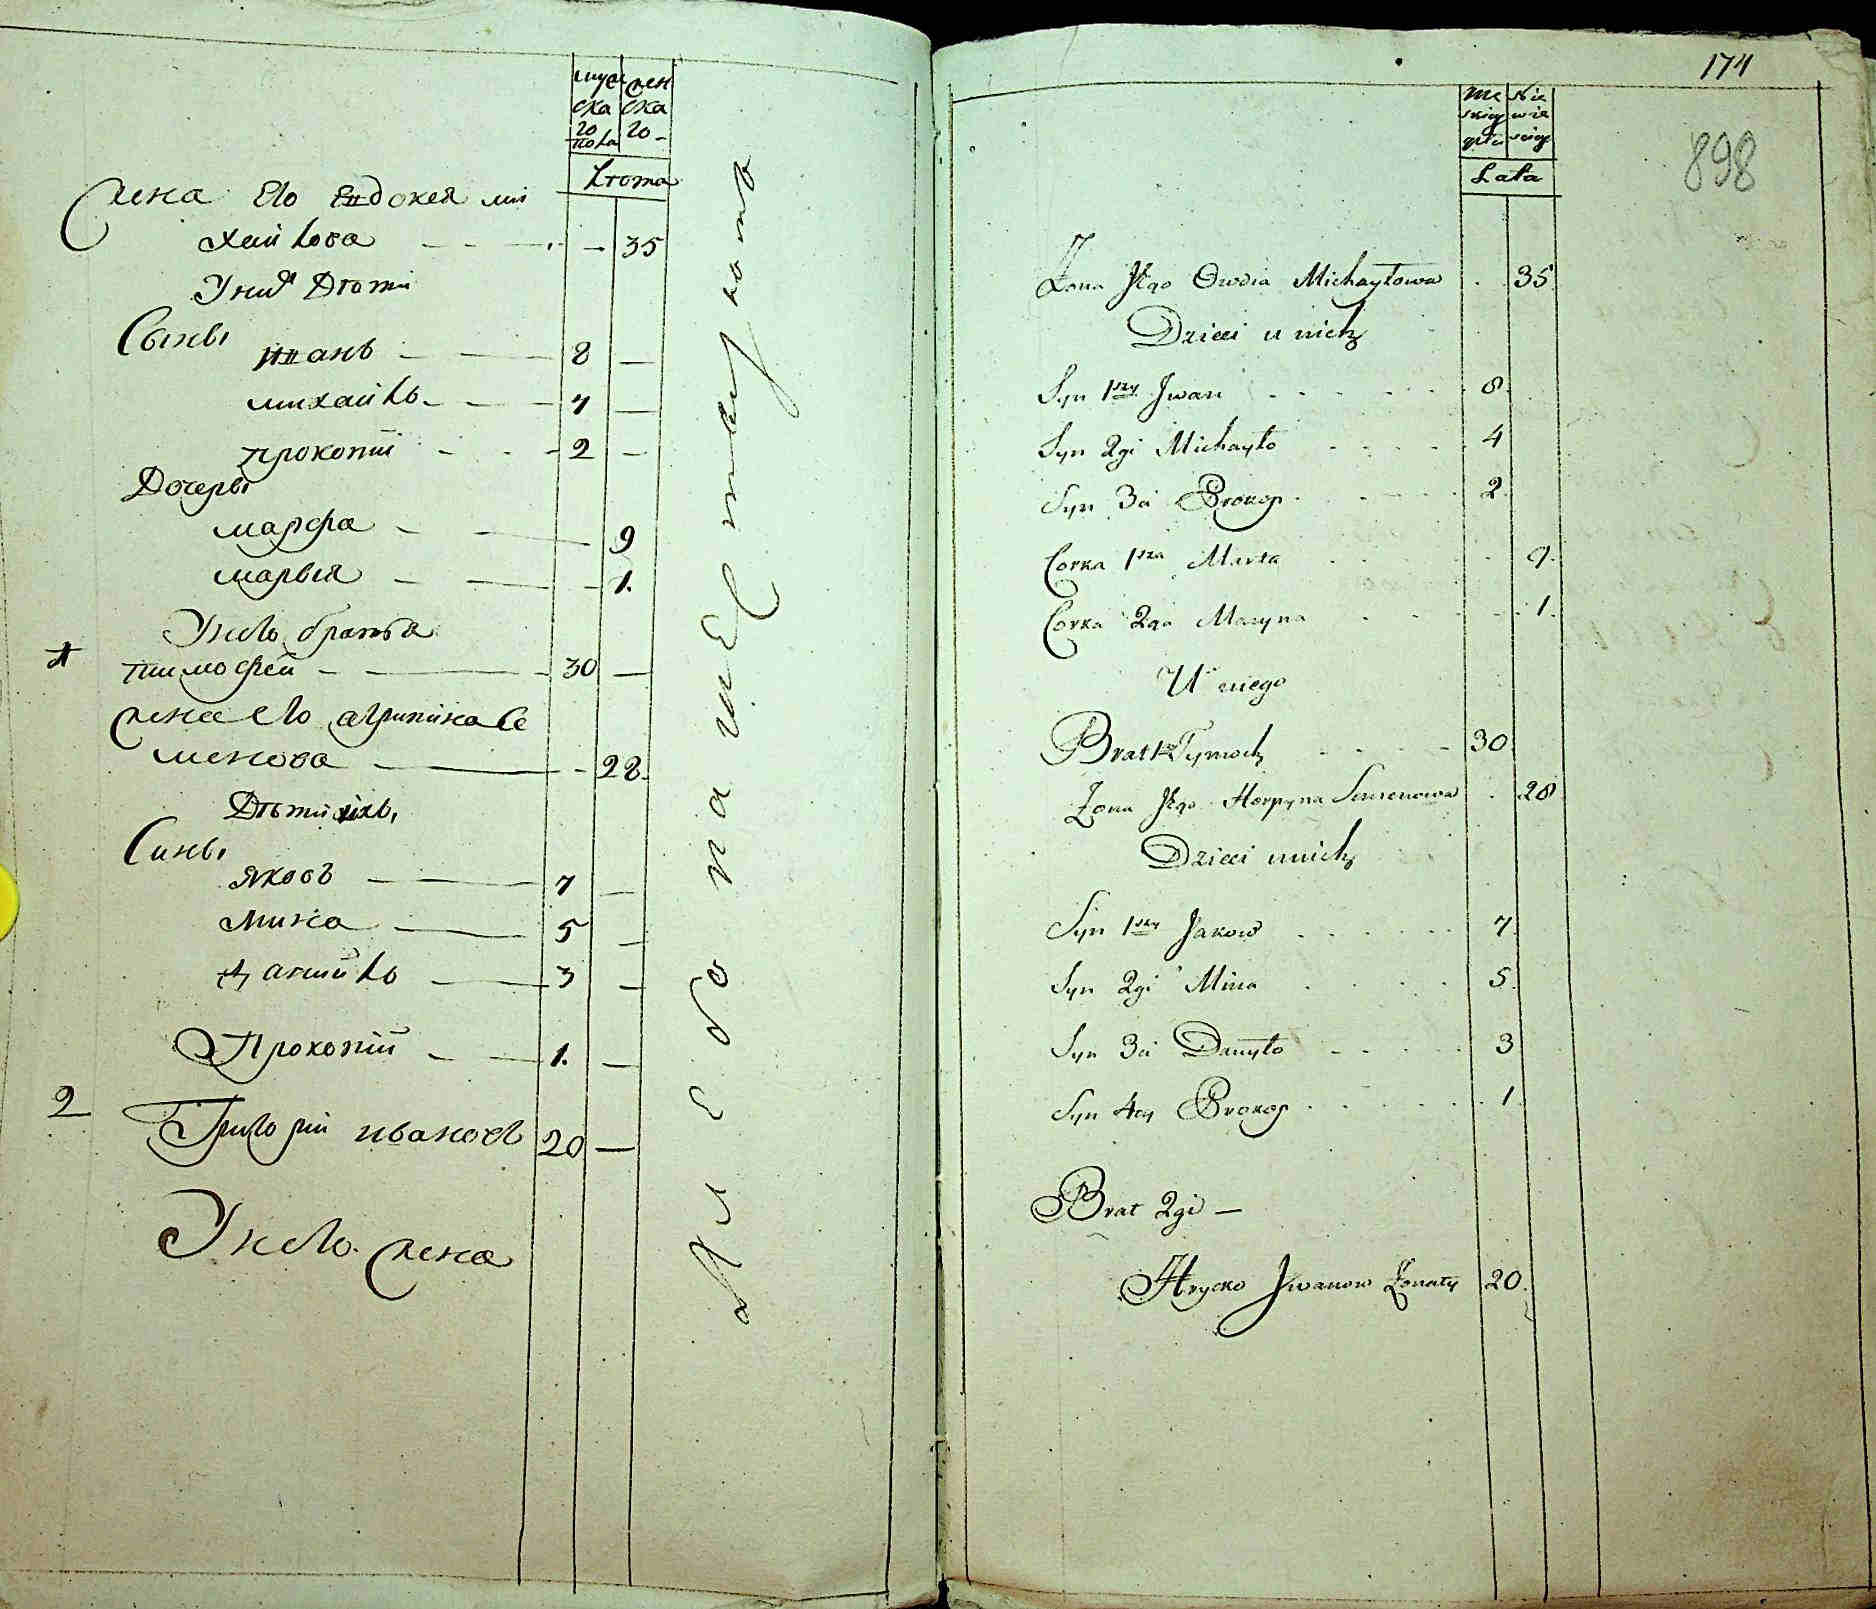 муже
ска
го
пола
жен
ска
го
Лѣта
Жена его Евдокея ми
хайлова 35
У них Дѣти
Сыны
иванъ 8 —
михайло 4 —
прокопій 2 —
Дочеры
марфа 9
марья 1.
У него братья
1
тимофей 30 —
жена его агрипина Се
менова 28
Дѣти ихъ,
Сины
яковъ 7 —
Мина 5 —
данило 3 —
Прокопій 1. —
2
Григорій ивановъ 20 —
У него жена
174
898
mę
skiey
płci
nie
wie
sciey
Lata
Żona Jego Owdia Michayłowa 35
Dzieci u nich
Syn 1szy Jwan 8
Syn 2gi Michayło 4
Syn 3ci Prokop 2
Corka 1sza Marta 9.
Corka 2ga Maryna 1.
U niego
Brat 1szy Tymoch 30
Żona Jego Horpyna Semenowa 28
Dzieci unich
Syn 1szy Jakow 7
Syn 2gi Mina 5
Syn 3ci Danyło 3
Syn 4ty Prokop 1
Brat 2gi —
Hrycko Jwanow Żonaty 20.